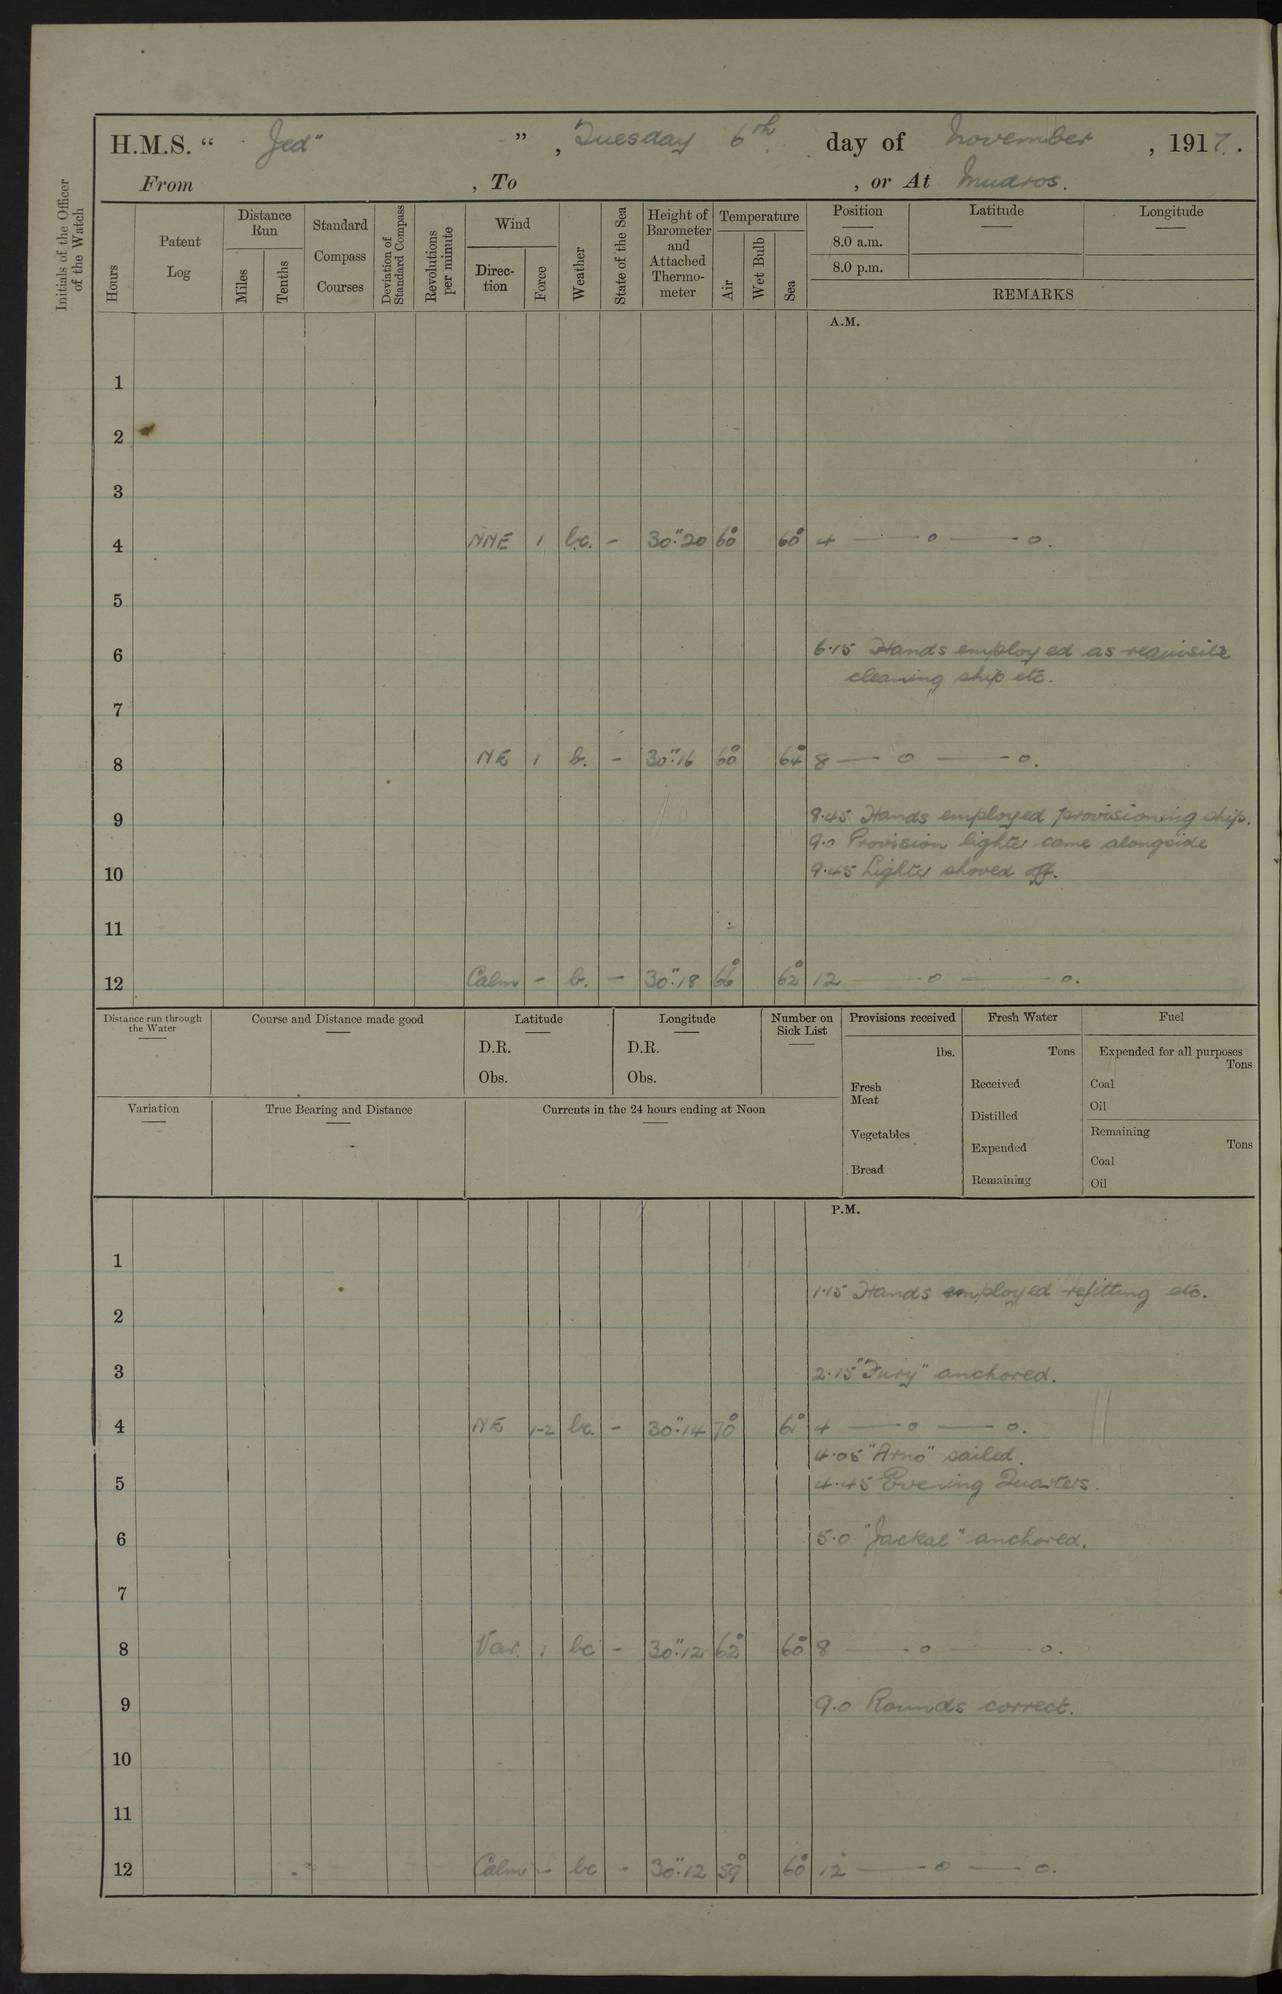 H.M.S. " Jed" ", Tuesday 6th day of November, 1917.
From , To , or At Mudros.
Initials of the Officer of the Watch
Hours
Patent Log
Distance Run
Miles
Tenths
Standard Compass Courses
Deviation of Standard Compass
Revolutions per minute
Wind
Direc-tion
Force
Weather
State of the Sea
Height of Barometer and Attached Thermo-meter
Temperature
Air
Wet Bulb
Sea
Position
8.0 a.m.
8.0 p.m.
Latitude
Longitude
REMARKS
A.M.
1
2
3
4 NNE 1 b.c. - 30".20 60° 60° 4 — o — o.
5
6 6.15 Hands employed as requisite
cleaning ship etc.
7
8 NE 1 b. - 30".16 60° 64° 8 — o — o.
9 8.45 Hands employed provisioning ship.
9.0 Provision lighter came alongside
10 9.45 Lighter shoved off.
11
12 Calm - b. - 30".18 66° 62° 12 — o — o.
Distance run through the Water
Course and Distance made good
Latitude
D.R.
Obs.
Longitude
D.R.
Obs.
Number on Sick List
Provisions received
lbs.
Fresh Meat
Vegetables
Bread
Fresh Water
Tons
Received
Distilled
Expended
Remaining
Fuel
Expended for all purposes
Tons
Coal
Oil
Remaining
Tons
Coal
Oil
Variation
True Bearing and Distance
Currents in the 24 hours ending at Noon
P.M.
1
1.15 Hands employed refitting etc.
2
3 2.15 "Fury" anchored.
4 NE 1-2 bc. - 30".14 70° 61° 4 — o — o.
4.05 "Arno" sailed.
5 4.45 Evening Quarters.
6 5.0 "Jackal" anchored.
7
8 Var. 1 bc - 30".12 62° 60° 8 — o — o.
9 9.0 Rounds correct.
10
11
12 Calm - bc - 30".12 59° 60° 12 — o — o.